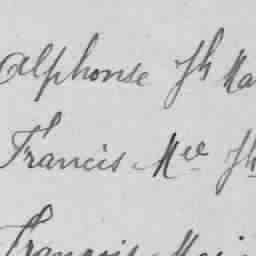 Alphonse Jh Ma
Francis Mce Jh
François Mari